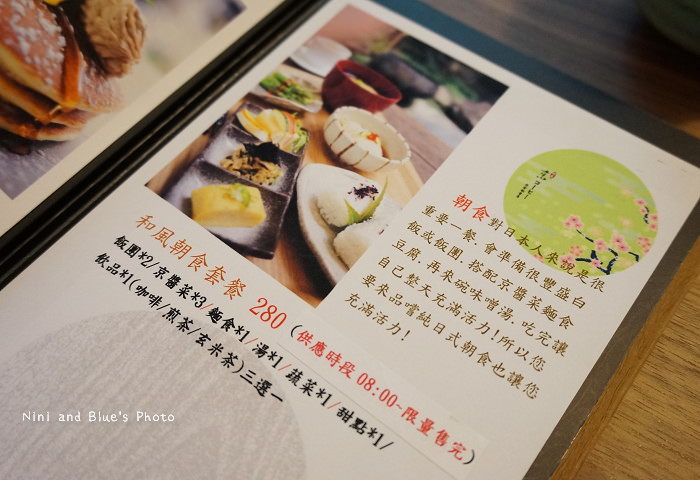 朝食對日本人來說是很
重要一餐,會準備很豐盛白
飯或飯團,搭配京醬菜麵食
豆腐,再來碗味噌湯,吃完讓
自己整天充滿活力!所以您
要來品嚐純日式朝食也讓您
充滿活力!
和風朝食套餐 280 (供應時段08:00~限量售完)
飯團*2/京醬菜*3/麵食*1/湯*1/蔬菜*1/甜點*1/
飲品*1(咖啡/煎茶/玄米茶)三選一
Nini and Blue's Photo